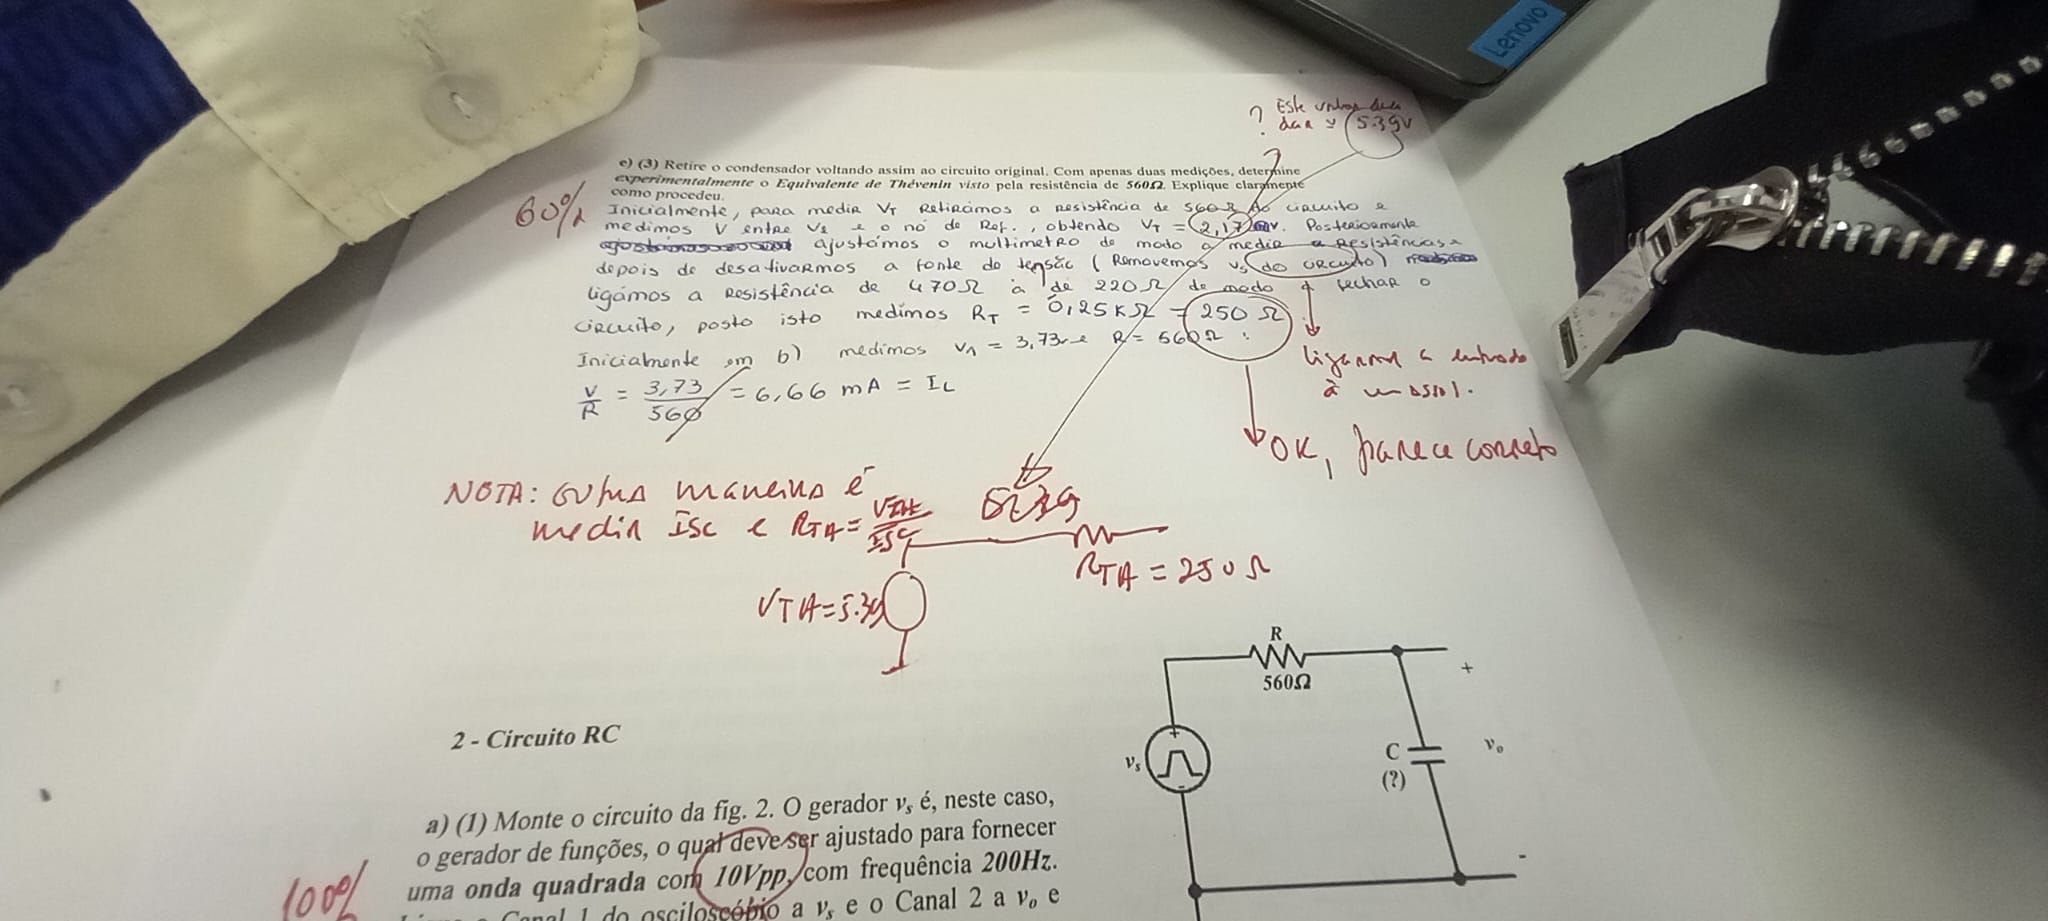 Lenovo
? Este valor deve
dar ≃ 5.39V
?
e) (3) Retire o condensador voltando assim ao circuito original. Com apenas duas medições, determine
experimentalmente o Equivalente de Thévenin visto pela resistência de 560Ω. Explique claramente
como procedeu.
60%
Inicialmente, para medir VT Retirámos a resistência de 560 Ω do circuito e
medimos V entre e o nó de Ref., obtendo VT = 2,17 V. Posteriormente
ajustámos o multímetro de modo a medir a Resistências
depois de desativarmos a fonte de tensão (Removemos vs do circuito)
ligámos a Resistência de 470Ω à de 220Ω de modo a fechar o
circuito, posto isto medimos RT = 0,25 KΩ = 250 Ω.
Inicialmente em b) medimos V1 = 3,73v e R = 560Ω :
V/R = 3,73/560 = 6,66 mA = IL
ligaram a entrada
à massa!
OK, parece correto
NOTA: outra maneira é
medir ISC e RTH = VTH/ISC
5.39
RTH = 250 Ω
VTH = 5.39
2 - Circuito RC
R
560Ω
+
vs
+
-
C
(?)
vo
-
a) (1) Monte o circuito da fig. 2. O gerador vs é, neste caso,
o gerador de funções, o qual deve ser ajustado para fornecer
uma onda quadrada com 10Vpp, com frequência 200Hz.
100%
Canal 1 do osciloscópio a vs e o Canal 2 a vo e